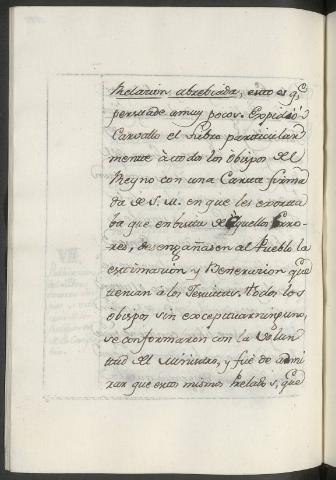 Relacion abrebiada, esto es qe.
persuade a muy pocos. Expidió
Carvallo el Libro particular
mente à todos los Obispos del
Reyno con una Carta firma
da de S. M. en que les exorta
ba que en busta de aquellos Erro
res, desengañasen al Pueblo la
estimacion y Veneracion que
tenian a los Jesuitas. Todos los
obispos sin exceptuar ninguno,
se conformaron con la volun
ttad del Ministro, y fué de admi
rar que estos mismos Prelados, que